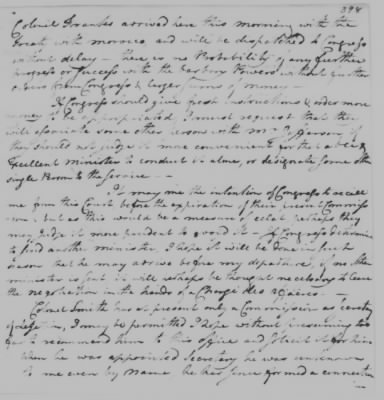 394
Colonel Franks arrived here this morning with the
Treaty with Morocco, and will be dispatched to Congress
without delay — there is no Probability of any further
progress or success with the Barbary Powers without further
orders from Congress & larger sums of money —
If Congress should give fresh Instructions & order more
money to be appropriated, I must request that they
will associate some other Person with Mr Jefferson, if
they should not judge it more convenient for that able &
Excellent Minister to conduct it alone, or designate some other
single Person to the Service —
It may be the intention of Congress to recall
me from this Court before the expiration of their present Commission
but as this would be a measure of eclat perhaps they
may judge it more prudent to avoid it — If Congress determine
to find another minister I hope it will be done in such
season that he may arrive before my departure, if no other
minister is sent it will perhaps be thought necessary to leave
the negotiation in the hands of a Chargé des affaires. —
Colonel Smith has at present only a Commission as Secretary
of Legation, I may be permitted I hope without presuming too
far to recommend him to this office and solicit it for him
When he was appointed Secretary he was unknown
to me even by name he has since formed a connection